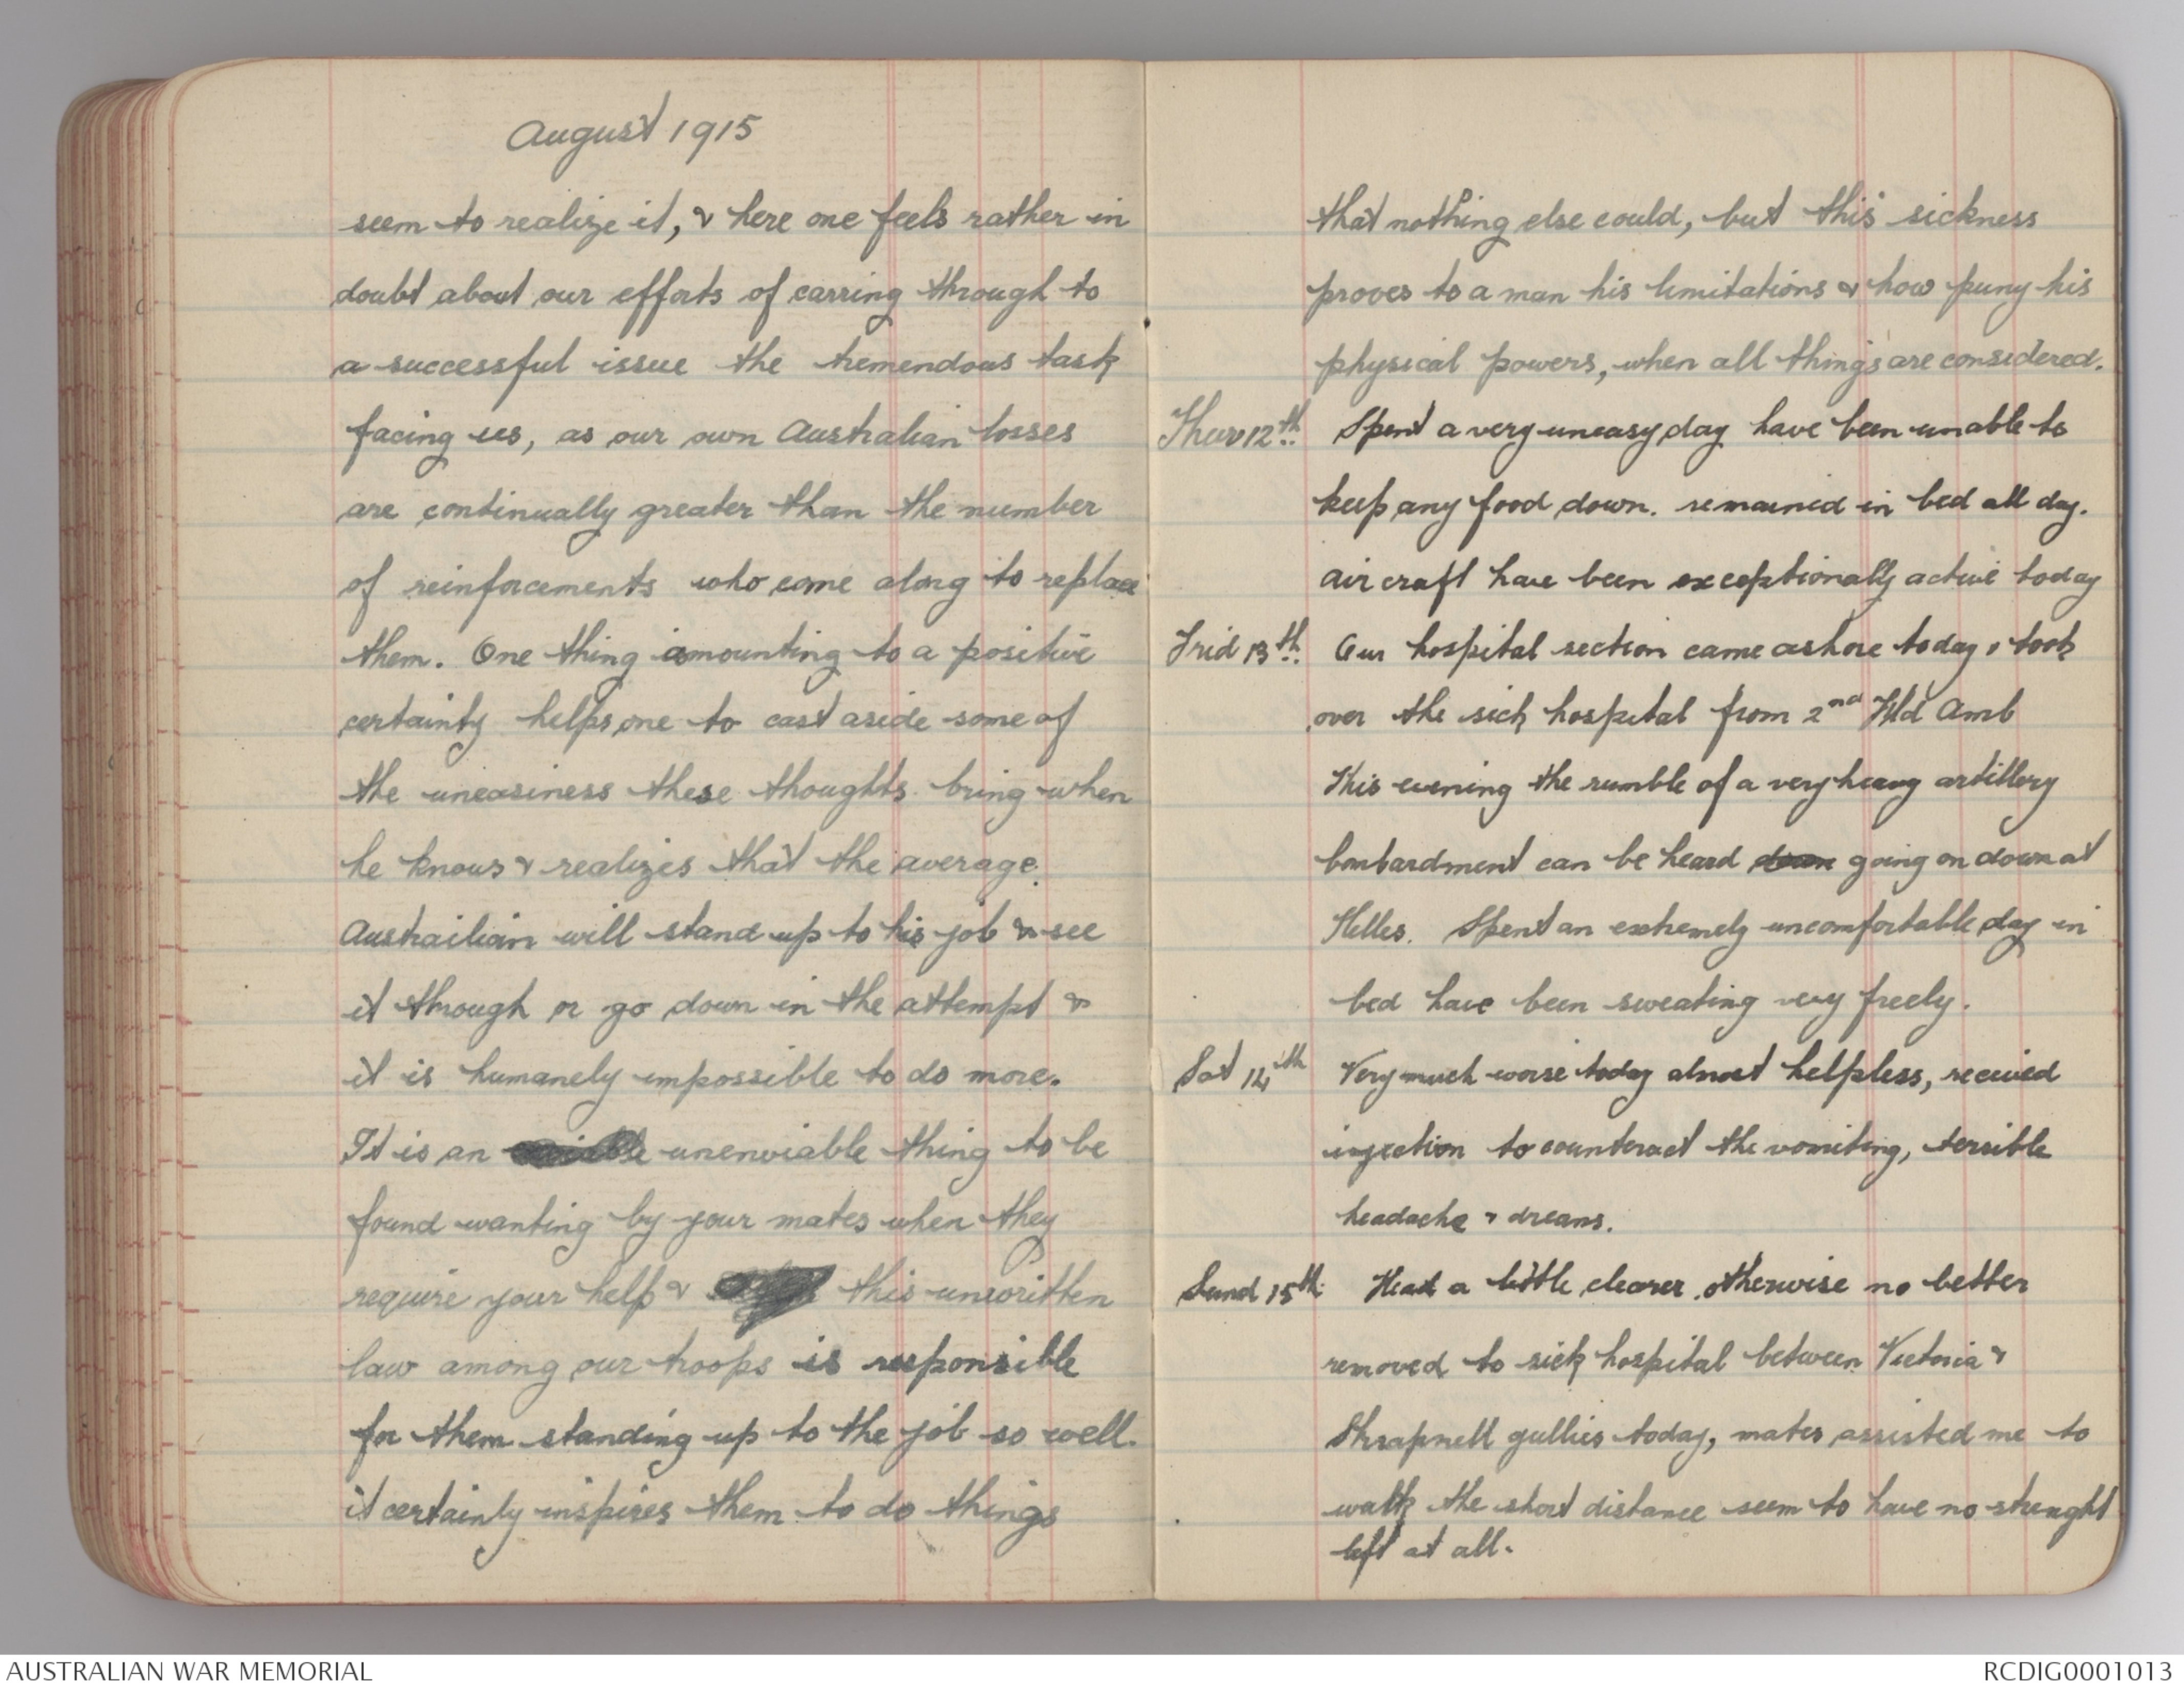 August 1915
seem to realize it, & here one feels rather in
doubt about our efforts of carring through to
a successful issue the tremendous task
facing us, as our own Australian losses
are continually greater than the number
of reinforcements who come along to replace
them. One thing amounting to a positive
certainty helps one to cast aside some of
the uneasiness these thoughts bring when
he knows & realizes that the average
Austrailian will stand up to his job & see
it through or go down in the attempt &
it is humanely impossible to do more.
It is an unenviable thing to be
found wanting by your mates when they
require your help & this unwritten
law among our troops is responsible
for them standing up to the job so well.
it certainly inspires them to do things
that nothing else could, but this sickness
proves to a man his limitations & how puny his
physical powers, when all things are considered.
Thur 12th. Spent a very uneasy day have been unable to
keep any food down. remained in bed all day.
air craft have been exceptionally active today
Frid 13th. Our hospital section came ashore today & took
over the sick hospital from 2nd Fld Amb
This evening the rumble of a very heavy artillery
bombardment can be heard down going on down at
Helles. Spent an extremely uncomfortable day in
bed have been sweating very freely.
Sat 14th Very much worse today almost helpless, received
injection to counteract the vomiting, terrible
headache & dreams.
Sund 15th. Head a little clearer otherwise no better
removed to sick hospital between Victoria &
Shrapnell gullies today, mates assisted me to
walk the short distance seem to have no strenght
left at all.
AUSTRALIAN WAR MEMORIAL
RCDIG0001013